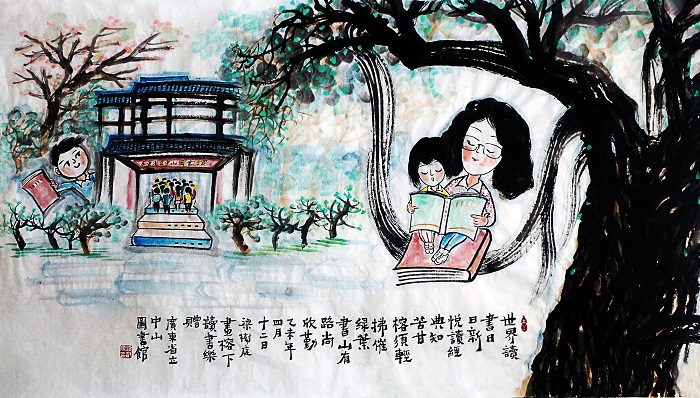 世界讀
書日
日新
悅讀經
典知
苦甘
榕須輕
拂催
綠葉
書山有
路尚
欣勤
乙未年
四月
十二日
梁
畫榕下
讀書樂
贈
廣東省立
中山
圖書館